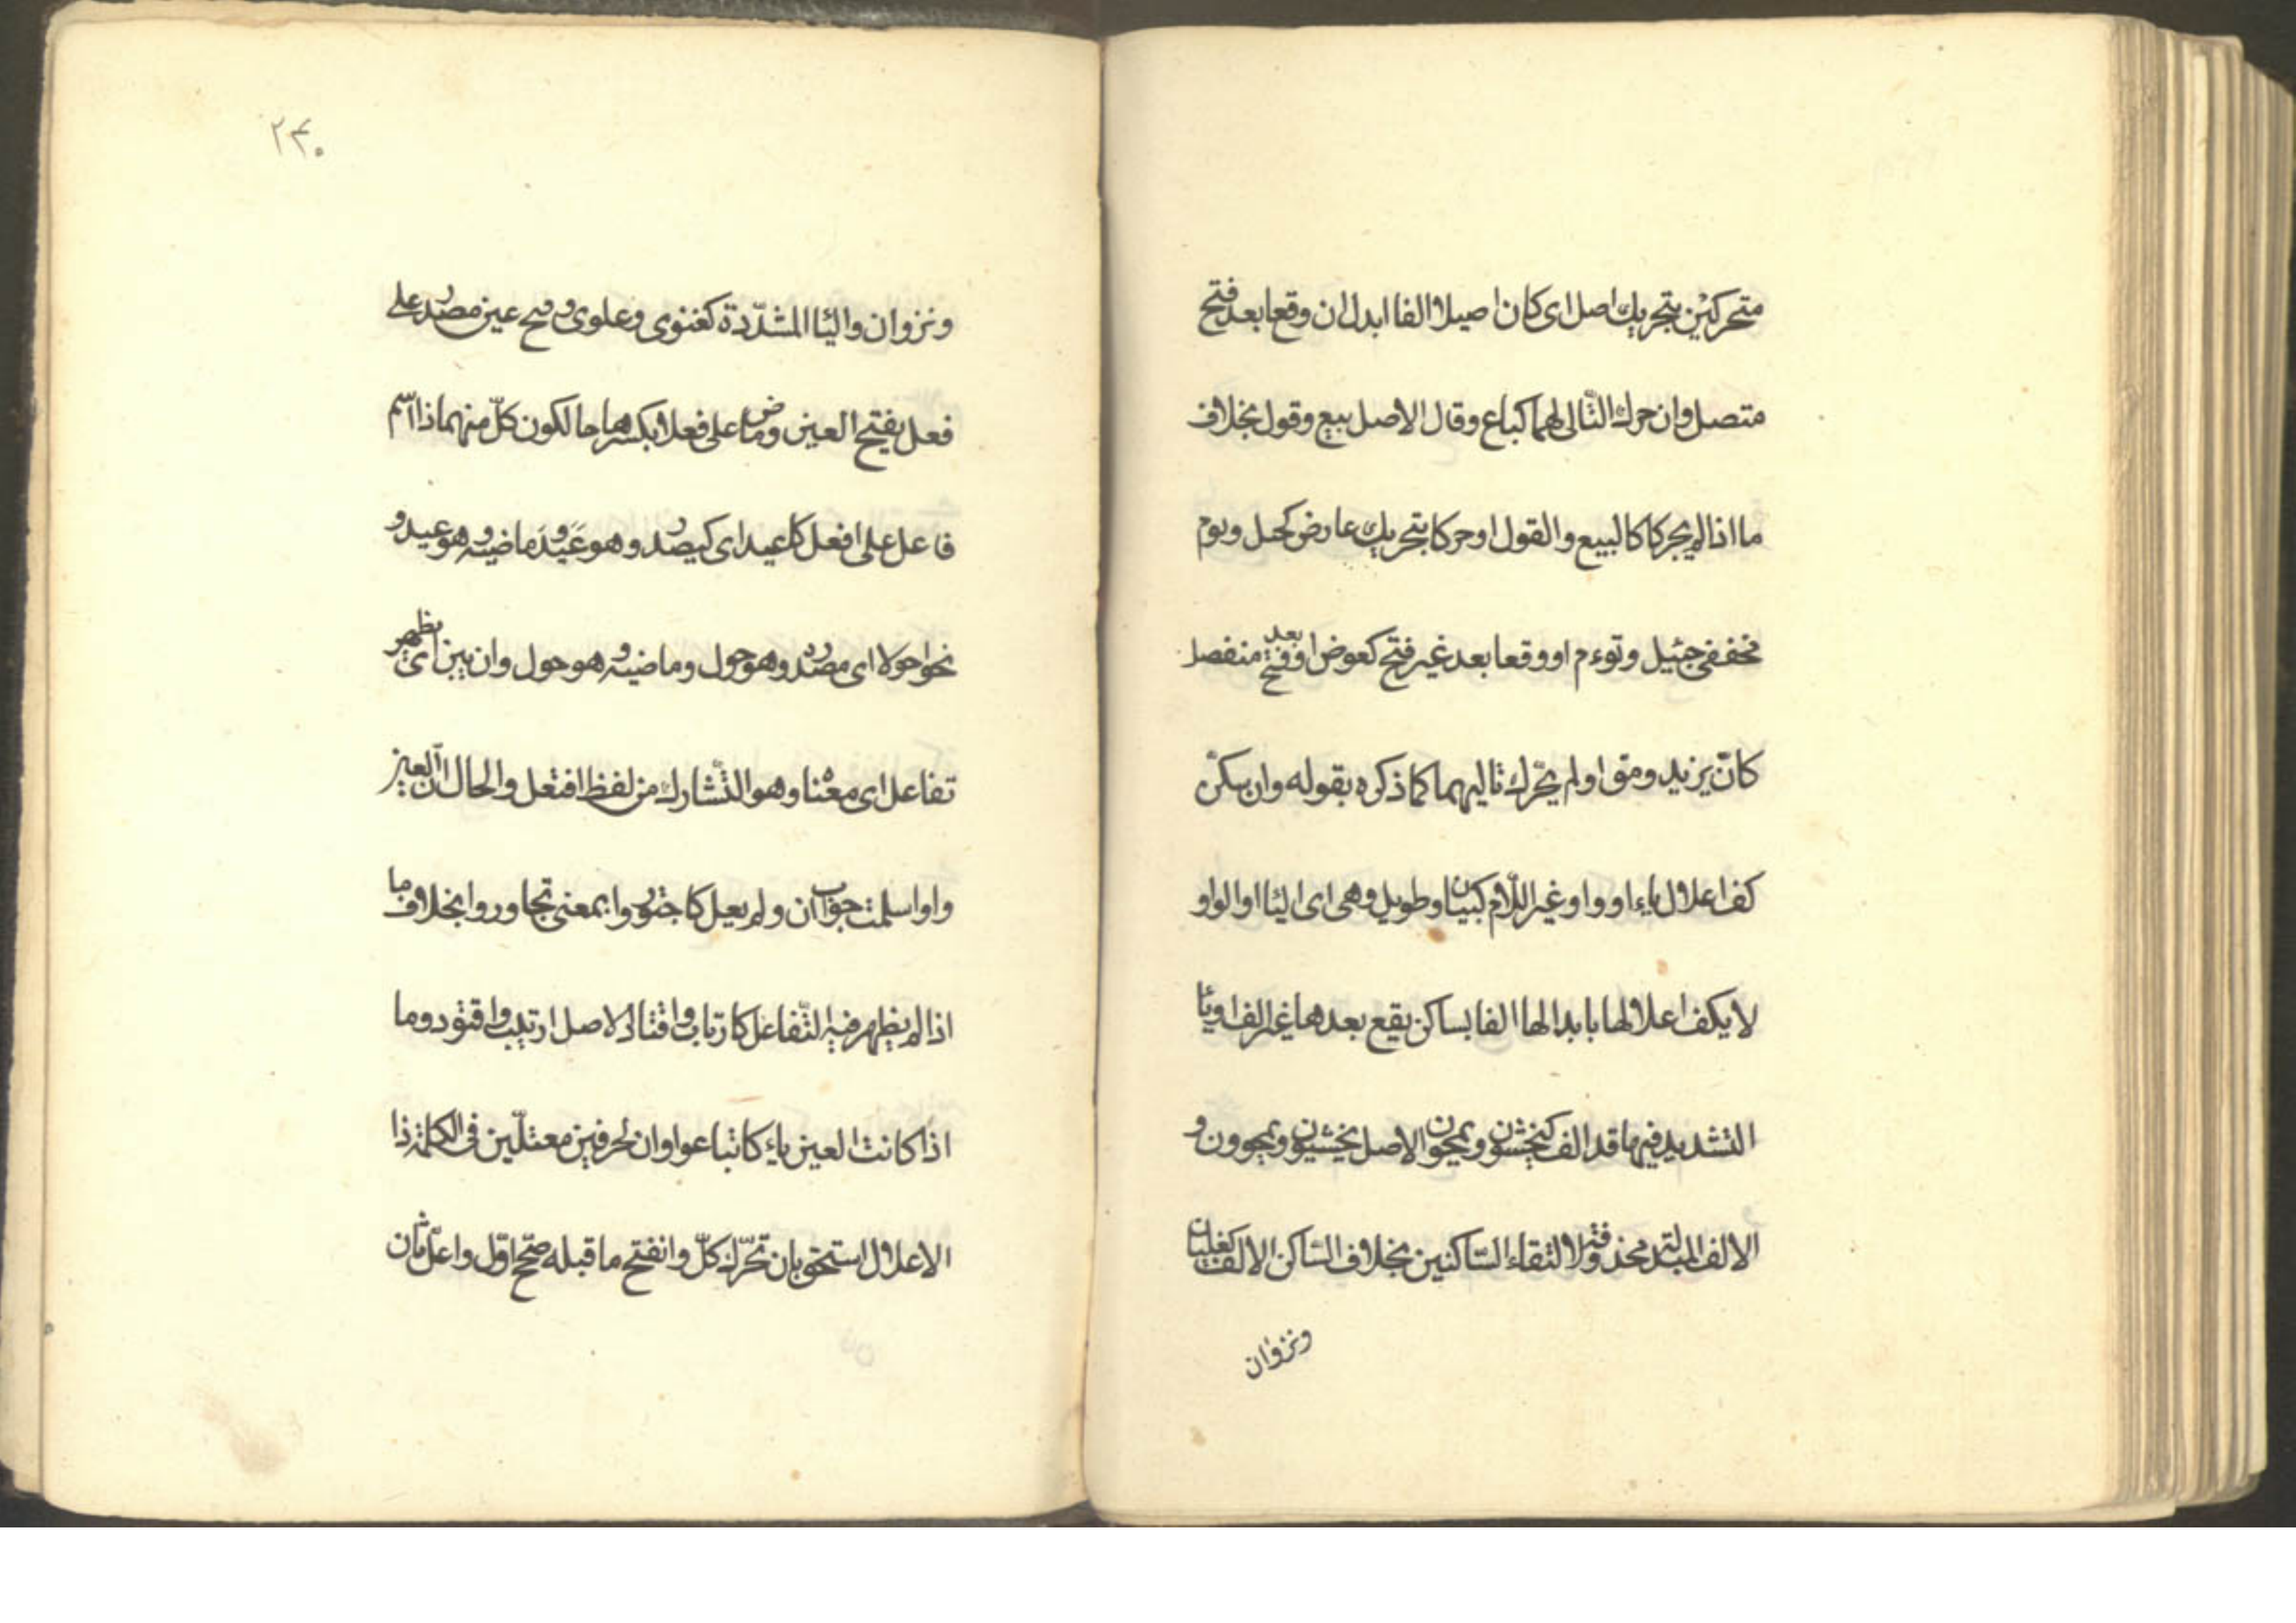 متحركين بتحريك اصل اى كان اصيلا الفا ابدل ان وقعا بعد فتح
متصل وان حرك التّالى لهما كباع وقال الاصل بيع وقول بخلاف
ما اذا لم يحركا كالبيع والقول او حركا بتحريك عارض كجيل وتوم
مخففى جيئل وتوءم او وقعا بعد غير فتح كعوض او بعد فتح منفصل
كانّ يزيد ومق او لم يحّرك تاليهما كما ذكره بقوله وان سكن
كف اعلال ياء او واو غير اللّام كبيان وطويل وهى اى اليا او الواو
لا يكف اعلالها بابدالها الفا بساكن يقع بعدها غير الف او يا
التشديد فيها قد الف كيخشون ويمحون الاصل يخشيون ويمحوون و
الالف المبدلة محذوفة لالتقاء السّاكنين بخلاف السّاكن الالف كغليان
ونزوان
٢٤٠
ونزوان واليا المشدّدة كغنوى وعلوى وصح عين مصدر على
فعل بفتح العين وماض على فعلا بكسرها حالكون كلّ منهما ذا اسم
فاعل على افعل كاعيد اى كمصدر وهو غَيَدَ وماضيه وهو غيد و
نحو احولا اى مصدره وهو حول وماضيه وهو حول وان يبن اى يظهر
تفاعل اى معناه وهو التّشارك من لفظ افتعل والحال انّ العين
واو سلمت جواب ان ولم يعل كاجتوروا بمعنى تجاوروا بخلاف ما
اذا لم يظهر فيه التّفاعل كارتاب واقتاد الاصل ارتيب واقتود وما
اذا كانت العين ياء كابتاعوا وان لحرفين معتلّين فى الكلمة ذا
الاعلال استحق بان تحرّك كلّ وانفتح ما قبله صحح اوّل واعلّ ثان